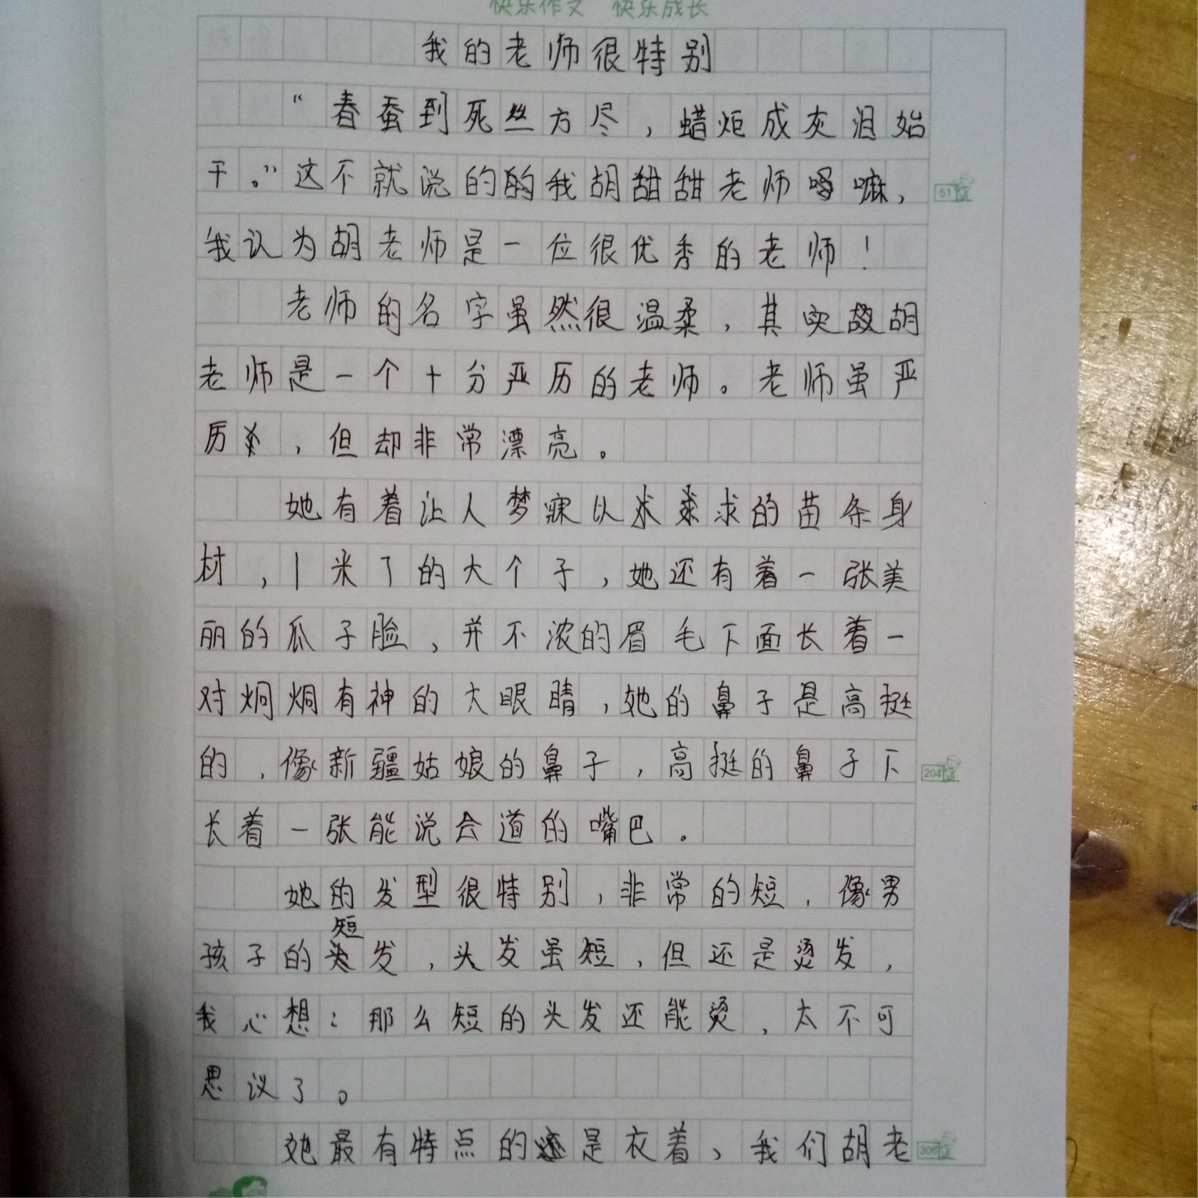 快乐作文 快乐成长
我的老师很特别
“春蚕到死丝方尽，蜡炬成灰泪始
干。”这不就说的的我胡甜甜老师吗嘛，
51
我认为胡老师是一位很优秀的老师！
老师的名字虽然很温柔，其实故胡
老师是一个十分严历的老师。老师虽严
厉，但却非常漂亮。
她有着让人梦寐以求的苗条身
材，1米7的大个子，她还有着一张美
丽的瓜子脸，并不浓的眉毛下面长着一
对炯炯有神的大眼睛，她的鼻子是高挺
的，像新疆姑娘的鼻子，高挺的鼻子下
204
长着一张能说会道的嘴巴。
她的发型很特别，非常的短，像男
孩子的短发，头发虽短，但还是烫发，
我心想：那么短的头发还能烫，太不可
思议了。
她最有特点的是衣着，我们胡老
306